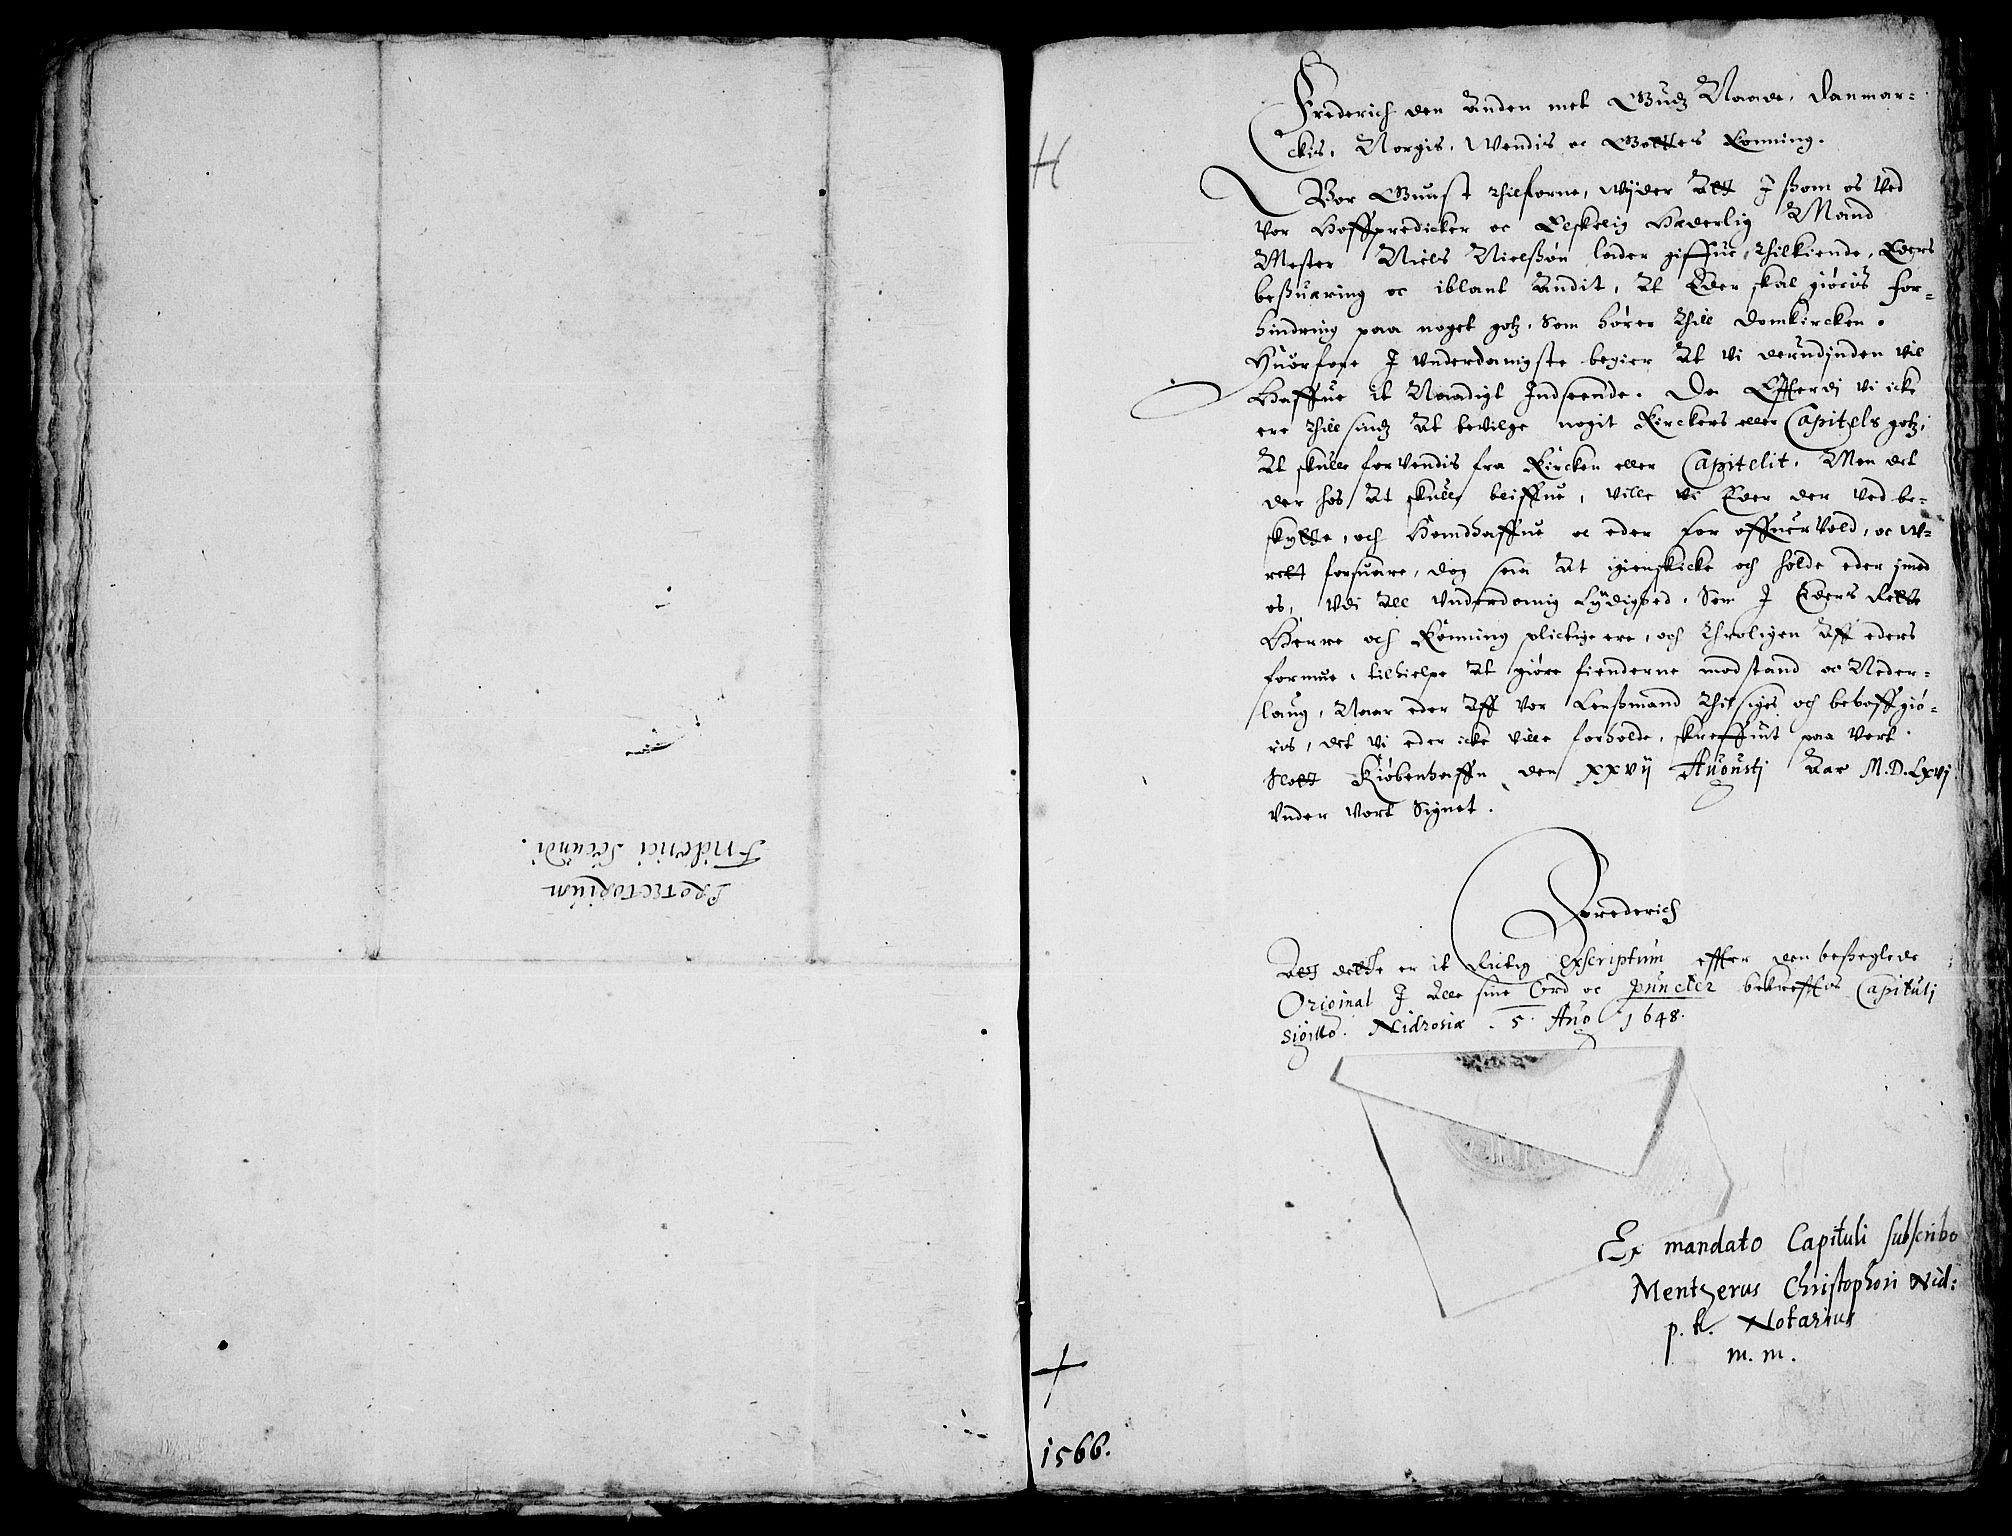 Protectorium
Friderici Secundi.
H
Frederich den Anden met Gudz Naade, Danmar-
ckis, Norgis, Wendis oc Gottes Konning.
Vor Gunst thilforne, Wijder Att I ßom os Ved
Vor Hoffpredicker oc Elskelig Hæderlig Mand
Mester Niels Nielßøn lader giffue thilkiende, Eders
beßuæring oc iblant Andit, At Eder skal giøris for-
hindring paa noget gotz, Som hører Thill Domkircken.
Huorfore I Vnderdanigste begier At Vi derudjnden Vil
Haffue it Naadigt Indseende. Da Efterdj Vi icke
ere thill sindz At bevilge nogit Kirckers eller Capitels gotz,
At skulle forVendis fra Kircken eller Capitelit, Men det
der hos At skulle bliffue, Ville Vi Eder der Ved be-
skytte, och Handhaffue oc eder for offuerVold, oc W-
rett forsuare, dog saa At igienskicke och holde eder jmod
os, Vdi All Vnderdanig Lydighed, Som I Eders Rette
Herre och Konning plictige ere, och Throligen Aff eders
formue, tilhielpe At giøre fienderne modstand oc Neder-
laug, Naar eder Aff Vor Lenßmand Thilsiges och behoff giø-
ris, det Vi eder icke Ville forholde, skreffuit paa Vort
Slott Kiøbenhaffn den xxvij Augustj Aar M.D.Lxvj
Vnder Vort Signet.
Frederich
Att dette er it Rictig Exscriptum effter den beßeglede
Original I Alle sine Ord oc puncter bekrefftes Capitulj
Sigillo. Nidrosiæ. 5. Aug 1648.
Ex mandato Capituli subscribo
Mentzerus Christophori Nid:
p. t. Notarius
m. m.
1566.